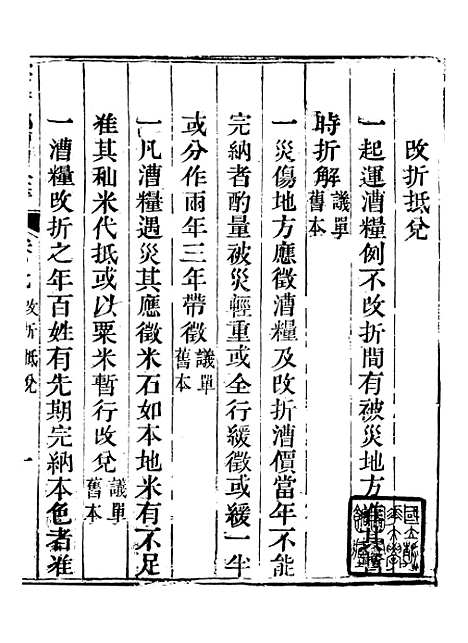 改折抵兌
一起運漕糧例不改折間有被災地方准其暫
時折解議單舊本
一災傷地方應徵漕糧及改折漕價當年不能
完納者酌量被災輕重或全行緩徵或緩一半
或分作兩年三年帶徵議單舊本
一凡漕糧遇災其應徵米石如本地米有不足
准其秈米代抵或以粟米暫行改兌議單舊本
一漕糧改折之年百姓有先期完納本色者准
改折抵兌
一